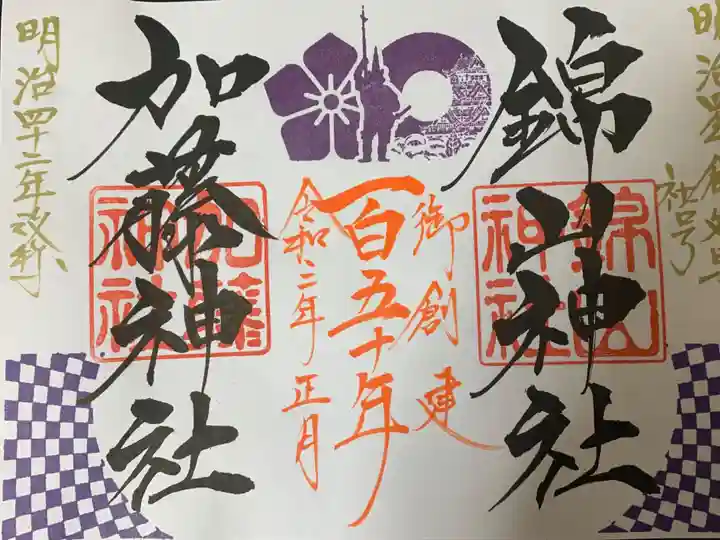 明治
社号
錦山神社
錦山
神社
御創建
一百五十年
令和二年正月
加藤神社
加藤
神社
明治四十二年改称